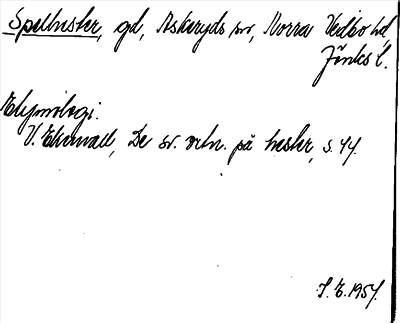 Spelhester, gd, Askeryds sn, Norra Vedbo hd,
Jönk. l.
Etymologi.
V. Ekenvall, De sv. ortn. på hester, s. 44.
I. E. 1957.